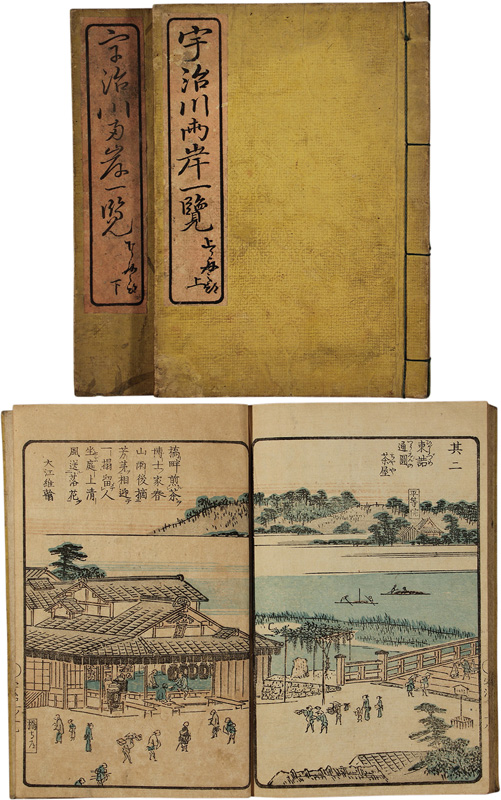 宇治川兩岸一覽
上
宇治川両岸一覧
下
其二
東詰
通圓
茶屋
平等院
橋畔煎茶
博士家春
山雨後摘
芳芽相逢
一榻留人
坐處上清
風送落花
大江維翰